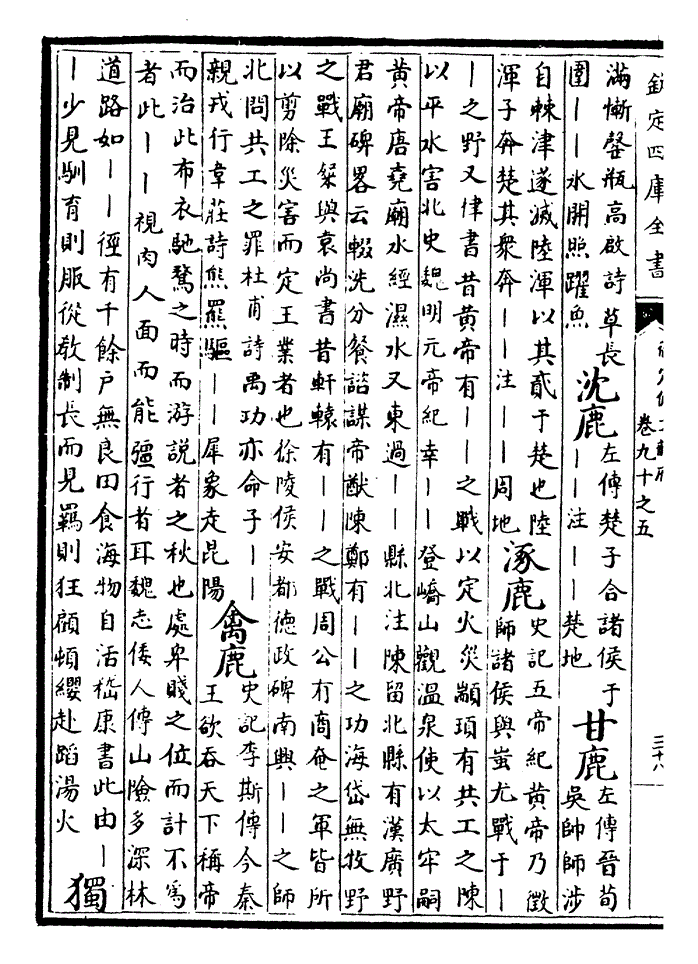 欽定四庫全書
御定佩文韻府
卷九十之五
三十八
滿慚罄瓶高啟詩草長
圍丨丨水開照躍魚
沈鹿
左傳楚子合諸侯于
丨丨注丨丨楚地
甘鹿
左傳晉荀
吳帥師涉
自棘津遂滅陸渾以其貳于楚也陸
渾子奔楚其衆奔丨丨注丨丨周地
涿鹿
史記五帝紀黃帝乃徵
師諸侯與蚩尤戰于丨
丨之野又律書昔黃帝有丨丨之戰以定火災顓頊有共工之陳
以平水害北史魏明元帝紀幸丨丨登嶠山觀溫泉使以太牢嗣
黃帝唐堯廟水經濕水又東過丨丨縣北注陳留北縣有漢廣野
君廟碑畧云輟洗分餐諮謀帝猷陳鄭有丨丨之功海岱無牧野
之戰王粲與袁尚書昔軒轅有丨丨之戰周公有商奄之軍皆所
以剪除災害而定王業者也徐陵侯安都德政碑南興丨丨之師
北問共工之罪杜甫詩禹功亦命子丨丨
親戎行韋莊詩熊羆驅丨丨犀象走昆陽
禽鹿
史記李斯傳今秦
王欲吞天下稱帝
而治此布衣馳騖之時而游說者之秋也處卑賤之位而計不爲
者此丨丨視肉人面而能彊行者耳魏志倭人傳山險多深林
道路如丨丨徑有千餘户無良田食海物自活嵇康書此由丨
丨少見馴育則服從教制長而見羈則狂顧頓纓赴蹈湯火
獨